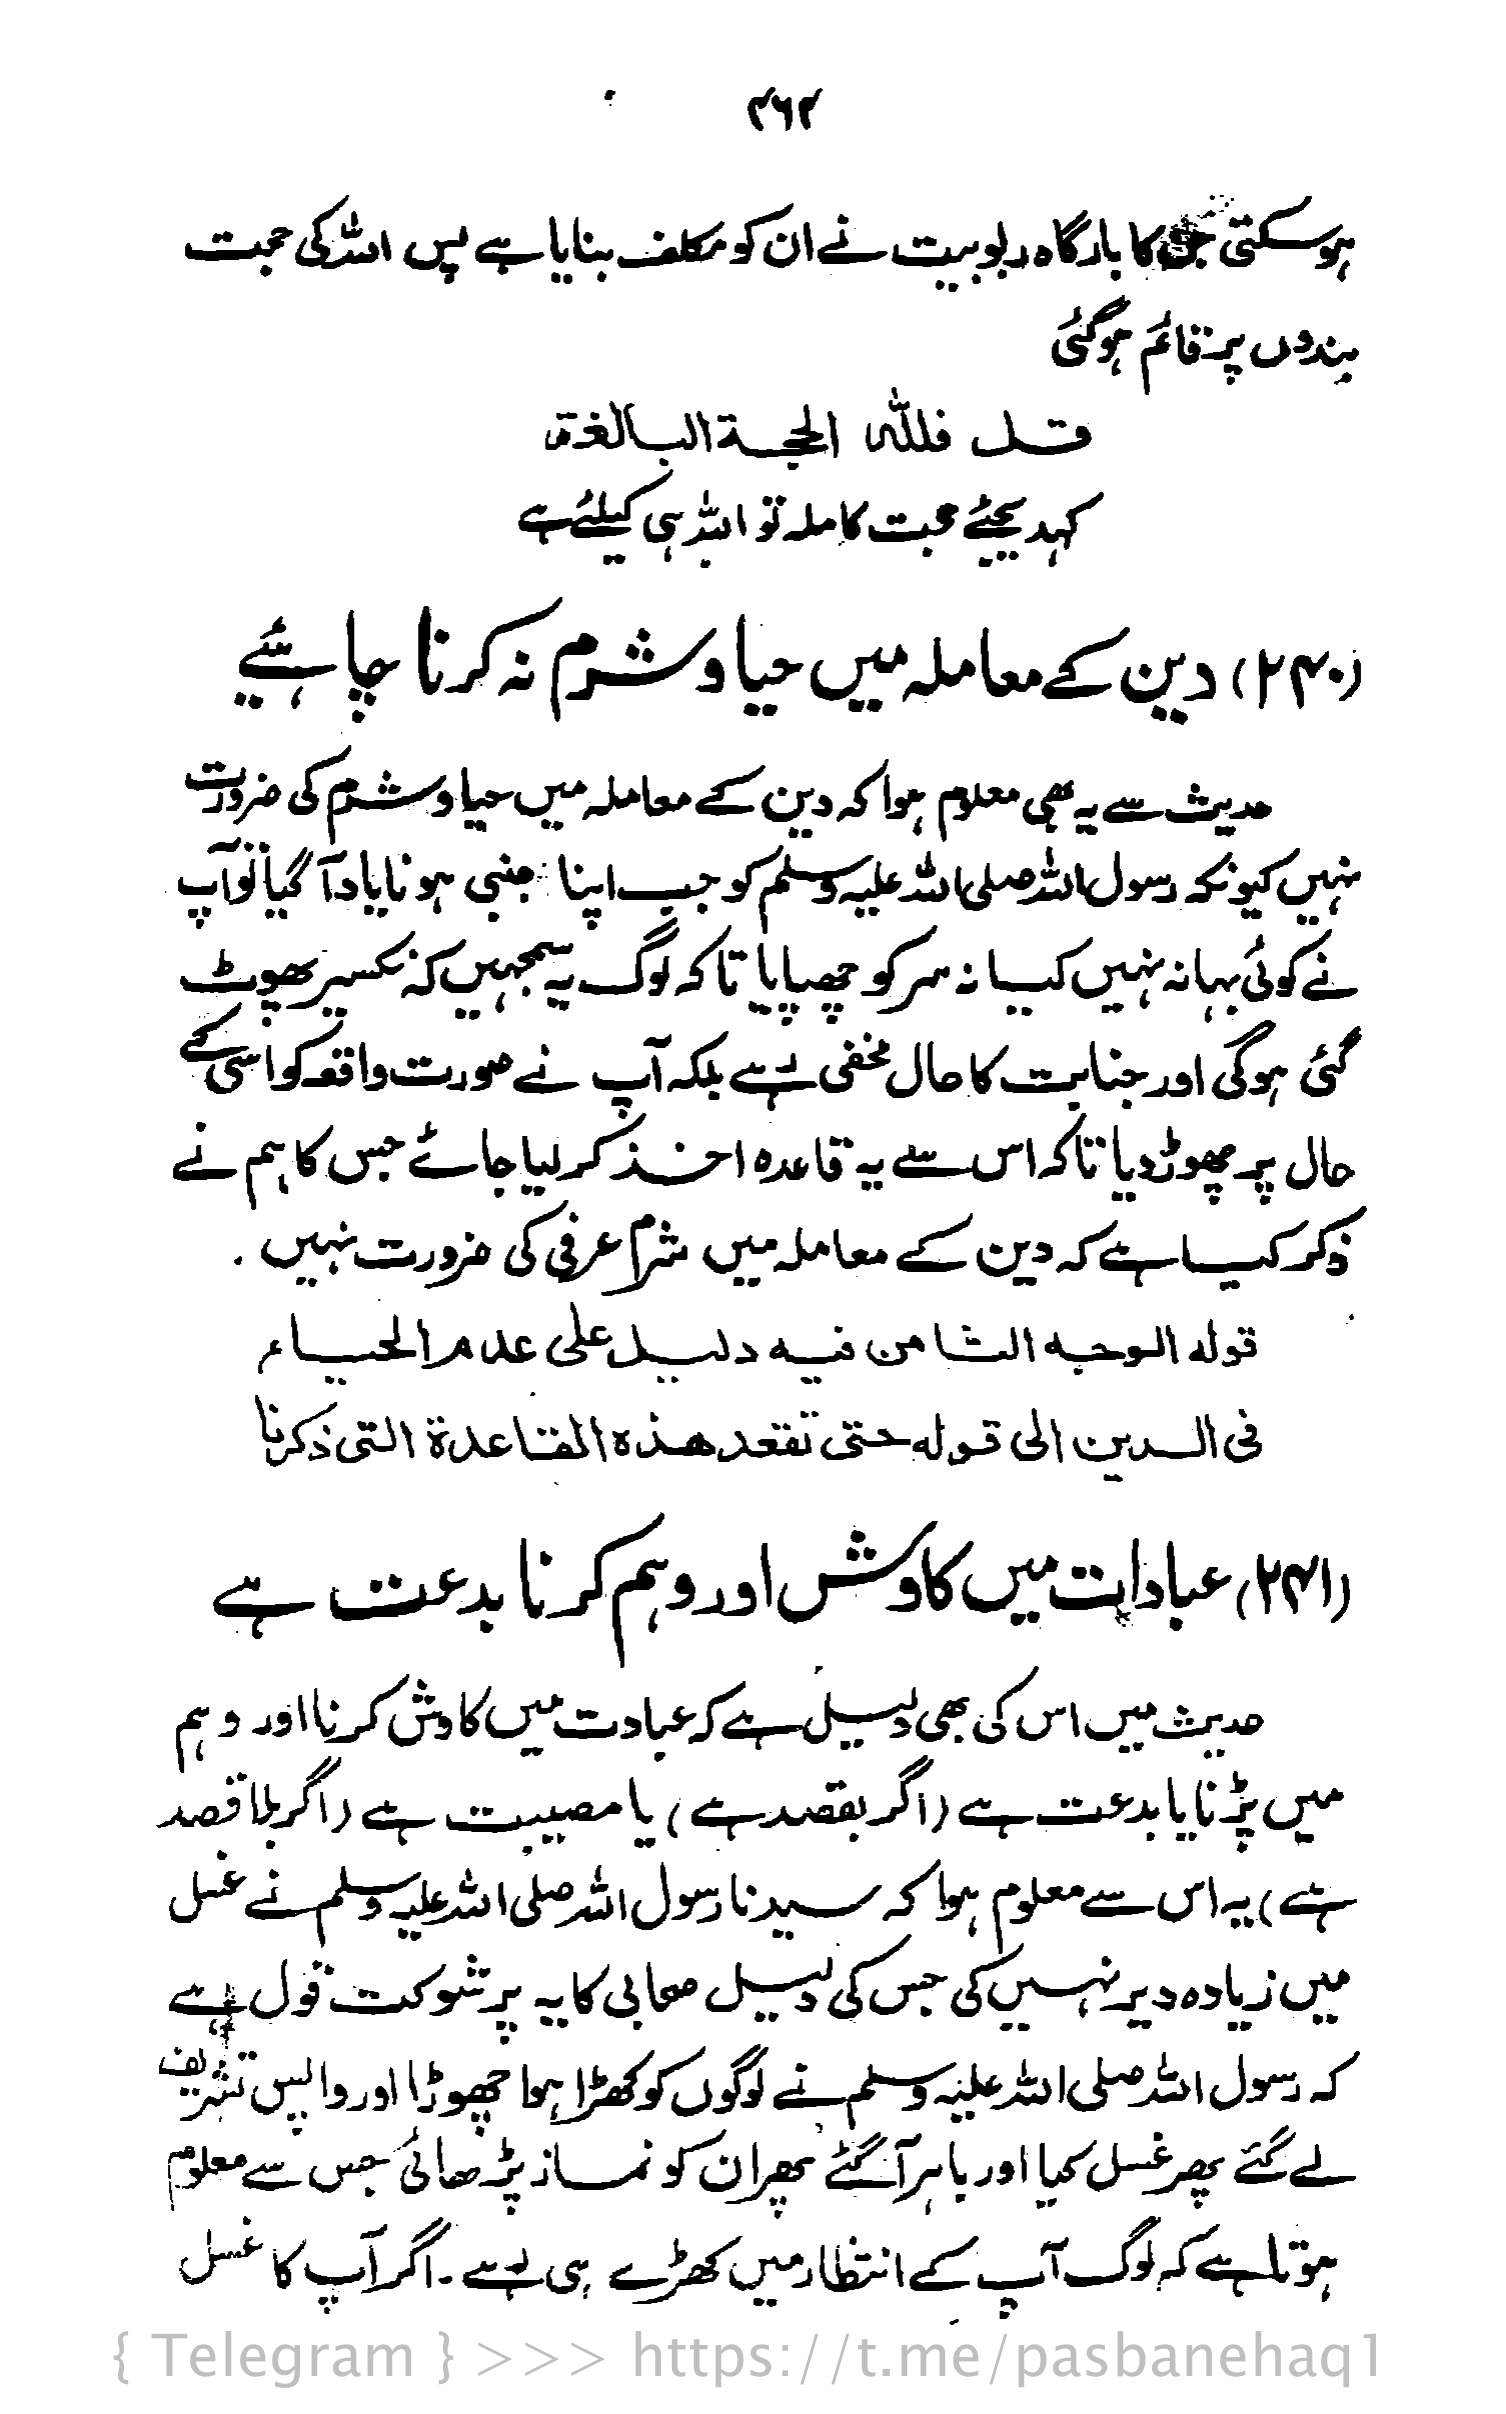 ۴۶۲
ہوسکتی جن کا بارگاہ ربوبیت نے ان کو مکلف بنایا ہے پس اللہ کی حجت
بندوں پر قائم ہوگئی
قل فللہ الحجة البالغة
کہدیجئے حجت کاملہ تو اللہ ہی کیلئے ہے
(۲۴۰) دین کے معاملہ میں حیا و شرم نہ کرنا چاہئیے
حدیث سے یہ بھی معلوم ہوا کہ دین کے معاملہ میں حیا و شرم کی ضرورت
نہیں کیونکہ رسول اللہ صلی اللہ علیہ وسلم کو جب اپنا جنبی ہونا یاد آگیا تو آپ
نے کوئی بہانہ نہیں کیا نہ سر کو چھپایا تاکہ لوگ یہ سمجہیں کہ نکسیر پھوٹ
گئی ہوگی اور جنابت کا حال مخفی رہے بلکہ آپ نے صورت واقعہ کو اسی کے
حال پر چھوڑ دیا تاکہ اس سے یہ قاعدہ اخذ کر لیا جائے جس کا ہم نے
ذکر کیا ہے کہ دین کے معاملہ میں شرم عرفی کی ضرورت نہیں .
قوله الوجه الثامن فيه دليل على عدم الحياء
فی الدين الى قوله حتى تقعد هذه القاعدة التى ذكرنا
(۲۴۱) عبادات میں کاوش اور وہم کرنا بدعت ہے
حدیث میں اس کی بھی دلیل ہے کہ عبادت میں کاوش کرنا اور وہم
میں پڑنا یا بدعت ہے (اگر بقصد ہے) یا مصیبت ہے (اگر بلا قصد
ہے) یہ اس سے معلوم ہوا کہ سیدنا رسول اللہ صلی اللہ علیہ وسلم نے غسل
میں زیادہ دیر نہیں کی جس کی دلیل صحابی کا یہ پر شوکت قول ہے
کہ رسول اللہ صلی اللہ علیہ وسلم نے لوگوں کو کھڑا ہوا چھوڑا اور واپس تشریف
لے گئے پھر غسل کیا اور باہر آگئے پھر ان کو نماز پڑھائی جس سے معلوم
ہوتا ہے کہ لوگ آپ کے انتظار میں کھڑے ہی رہے ۔ اگر آپ کا غسل
{ Telegram } >>> https://t.me/pasbanehaq1